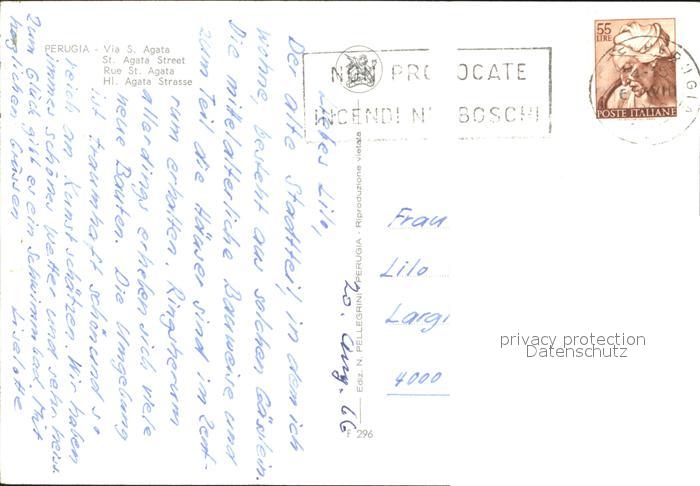 PERUGIA - Via S. Agata
St. Agata Street
Rue St. Agata
Hl. Agata Strasse
NON PROVOCATE
INCENDI NEI BOSCHI
55
LIRE
POSTE ITALIANE
PERUGIA
20. Aug. 66
Liebes Lilo,
Der alte Stadtteil, in dem ich
wohne, besteht aus solchen Gässlein.
Die mittelalterliche Bauweise und
zum Teil die Häuser sind im Zent-
rum erhalten. Ringsherum
allerdings erheben sich viele
neue Bauten. Die Umgebung
ist traumhaft schön und so
reich an Kunstschätzen. Wir haben
immer schönes Wetter und sehr heiss.
Zum Glück gibt es ein Schwimmbad. Mit
herzlichen Grüssen Liselotte
Ediz. N. PELLEGRINI - PERUGIA - Riproduzione vietata
F 296
Frau
Lilo
Largi
4000
privacy protection
Datenschutz